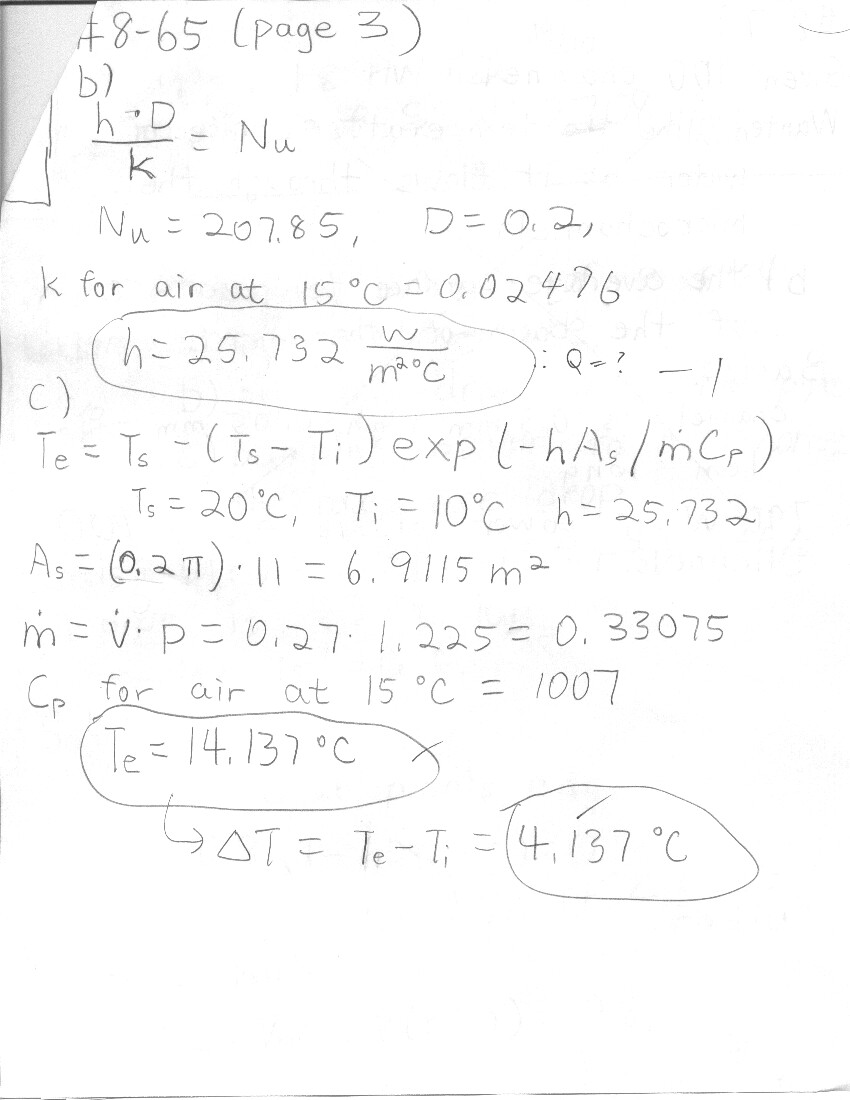 #8-65 (page 3)
b)
h·D/k = Nu
Nu = 207.85, D = 0.2,
k for air at 15 °C = 0.02476
h = 25.732 W/m²°C : Q = ? — 1
c)
Te = Ts - (Ts - Ti) exp (-hAs/ṁCp)
Ts = 20°C, Ti = 10°C h = 25.732
As = (0.2π)·11 = 6.9115 m²
ṁ = V̇·ρ = 0.27·1.225 = 0.33075
Cp for air at 15 °C = 1007
Te = 14.137 °C
↳ ΔT = Te - Ti = 4.137 °C